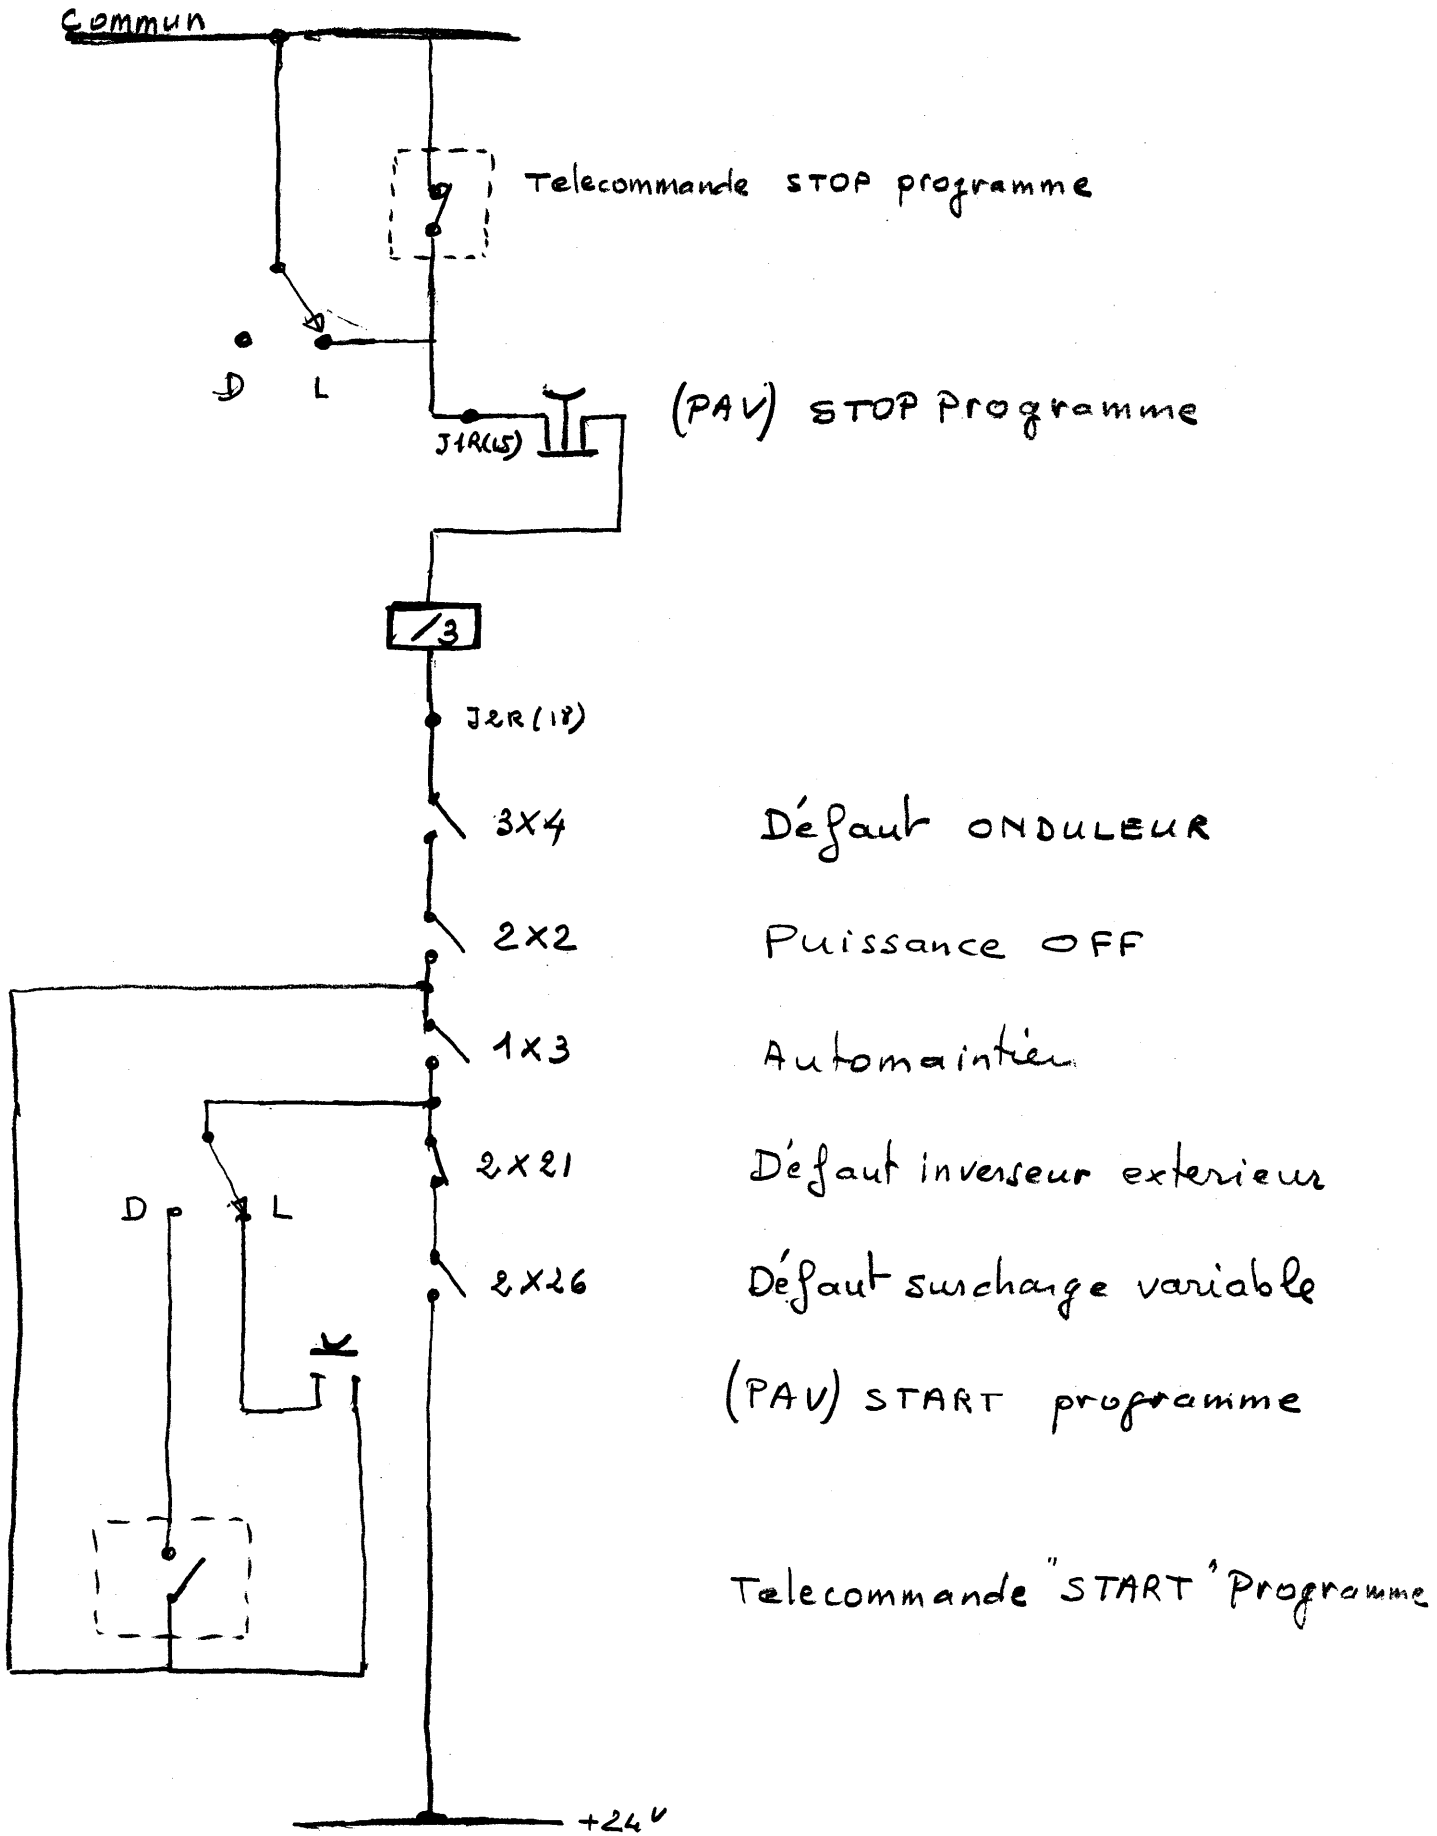 Commun
Telecommande STOP programme
D L
(PAV) STOP Programme
J1R(15)
/3
J2R(18)
3X4 Défaut ONDULEUR
2X2 Puissance OFF
1X3 Automaintien
2X21 Défaut inverseur exterieur
D L
2X26 Défaut surcharge variable
(PAV) START programme
Telecommande "START" Programme
+24V